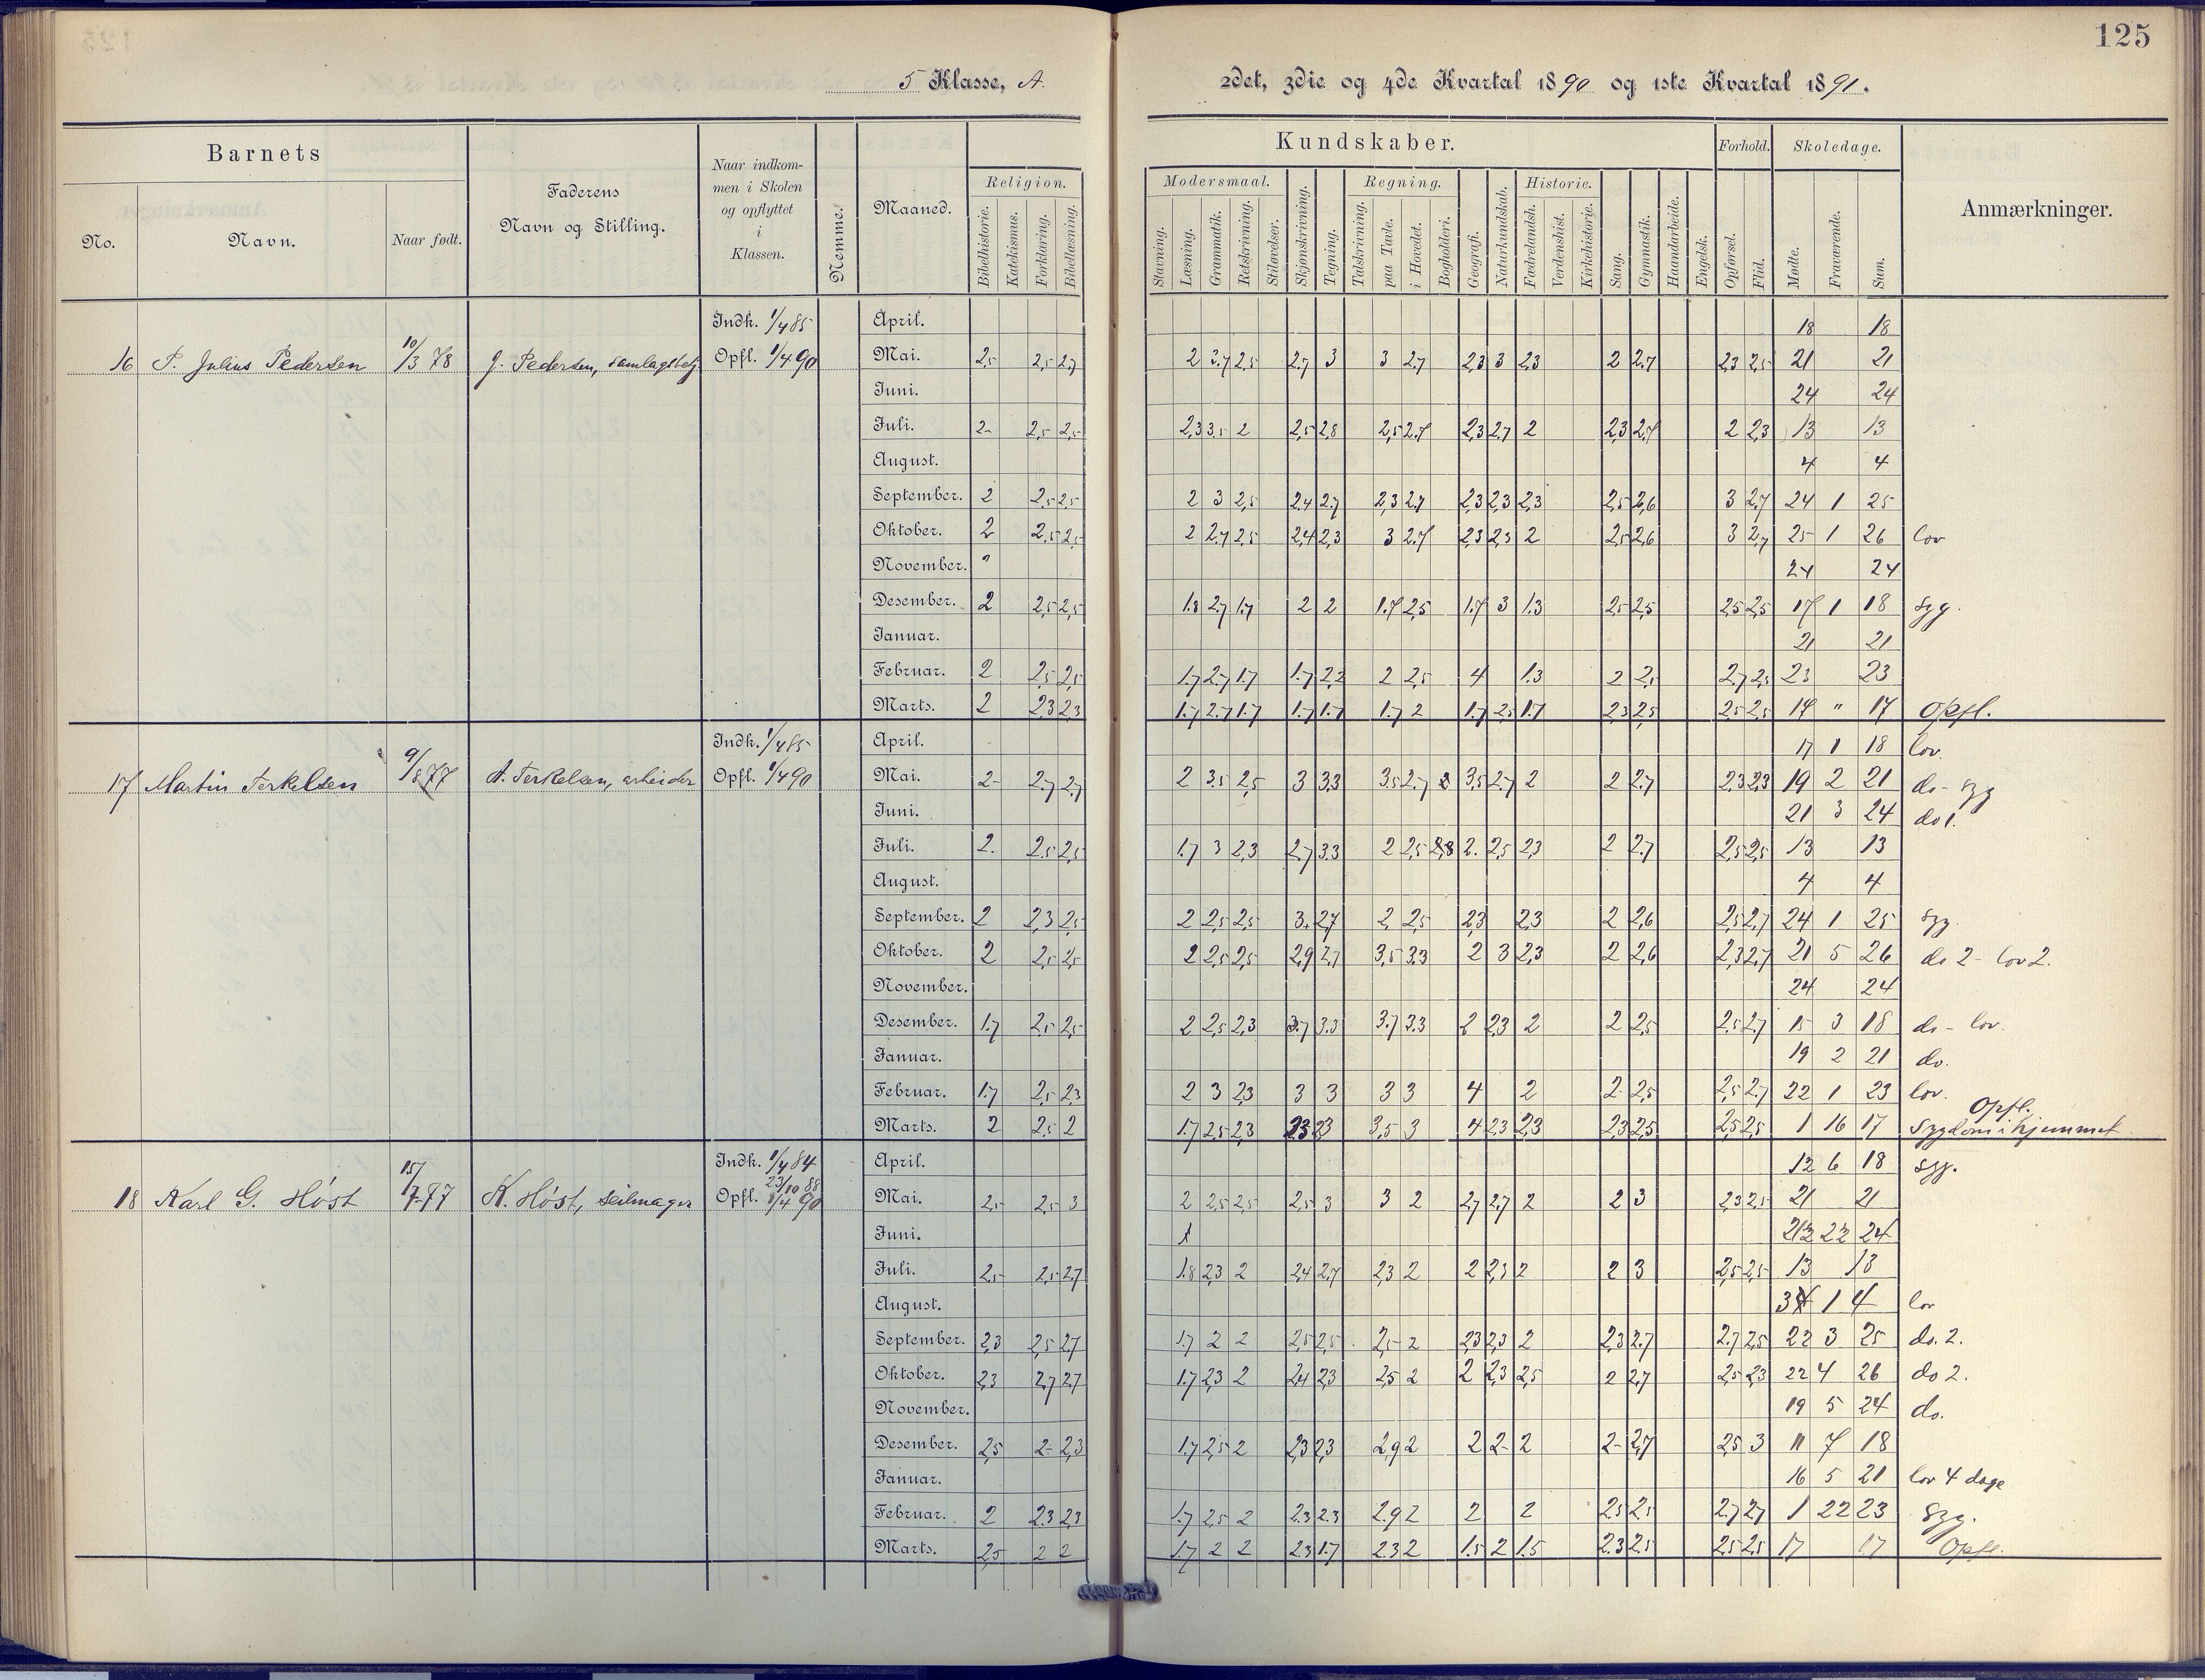 125
5 Klasse, A.
2det, 3die og 4de Kvartal 1890 og 1ste Kvartal 1891.
Barnets
No.
Navn.
Naar født.
Faderens
Navn og Stilling.
Naar indkom-
men i Skolen
og opflyttet
i
Klassen.
Nemme.
Maaned.
Religion.
Bibelhistorie.
Katekismus.
Forklaring.
Bibellæsning.
Kundskaber.
Modersmaal.
Stavning.
Læsning.
Grammatik.
Retskrivning.
Stiløvelser.
Skjønskrivning.
Tegning.
Regning.
Talskrivning.
paa Tavle.
i Hovedet.
Bogholderi.
Geografi.
Naturkundskab.
Historie.
Fædrelandsh.
Verdenshist.
Kirkehistorie.
Sang.
Gymnastik.
Haandarbeide.
Engelsk.
Forhold.
Opførsel.
Flid.
Skoledage.
Mødte.
Fraværende.
Sum.
Anmærkninger.
16 P. Julius Pedersen 10/3 78 J. Pedersen, samlagsbetj
Indk. 1/4 85
Opfl. 1/4 90
April. 18 18
Mai. 2,5 2,5 2,7 2 3.7 2,5 2.7 3 3 2.7 2,3 3 2,3 2 2.7 2,3 2,5 21 21
Juni. 24 24
Juli. 2- 2,5 2,5 2,3 3,5 2 2,5 2,8 2,5 2.7 2,3 2,7 2 2,3 2,7 2 2,3 13 13
August. 4 4
September. 2 2,5 2,5 2 3 2,5 2,4 2,7 2,3 2,7 2,3 2,3 2,3 2,5 2,6 3 2,7 24 1 25
Oktober. 2 2,5 2,5 2 2.7 2,5 2,4 2,3 3 2.7 2,3 2,3 2 2,5 2,6 3 2,7 25 1 26 lov
November. " 24 24
Desember. 2 2,5 2,5 1.8 2.7 1.7 2 2 1.7 2,5 1.7 3 1.3 2,5 2,5 2,5 2,5 17 1 18 syg.
Januar. 21 21
Februar. 2 2,5 2,5 1.7 2.7 1.7 1.7 2,2 2 2,5 4 1.3 2 2,5 2.7 2,5 23 23
Marts. 2 2,3 2,3 1.7 2.7 1.7 1.7 1.7 1.7 2 1.7 2,5 1.7 2,3 2,5 2,5 2,5 17 " 17 Opfl.
17 Martin Terkelsen 9/8 77 A. Terkelsen, arbeider
Indk. 1/4 85
Opfl. 1/4 90
April. 17 1 18 lov.
Mai. 2- 2.7 2.7 2 3.5 2,5 3 3,3 3.5 2.7 3,5 2.7 2 2 2.7 2,3 2,3 19 2 21 do - syg
Juni. 21 3 24 do 1.
Juli. 2. 2,5 2,5 1.7 3 2,3 2.7 3.3 2 2,5 2,8 2. 2,5 2,3 2 2.7 2,5 2,5 13 13
August. 4 4
September. 2 2,3 2,5 2 2,5 2,5 3. 2,7 2 2,5 2,3 2,3 2 2,6 2,5 2,7 24 1 25 syg.
Oktober. 2 2,5 2,5 2 2,5 2,5 2,9 2,7 3,5 3,3 2 3 2,3 2 2,6 2,3 2,7 21 5 26 do 2 - lov 2.
November. 24 24
Desember. 1.7 2,5 2,5 2 2,5 2,3 3.7 3.3 3.7 3.3 2 2,3 2 2 2,5 2,5 2.7 15 3 18 do - lov.
Januar. 19 2 21 do.
Februar. 1.7 2,5 2,3 2 3 2,3 3 3 3 3 4 2 2- 2,5 2,5 2.7 22 1 23 lov.
Marts. 2 2,5 2 1.7 2,5 2,3 2,3 2,3 3,5 3 4 2,3 2,3 2,3 2,5 2,5 2,5 1 16 17 Sygdom i hjemmet Opfl.
18 Karl G. Høst 15/7 77 K. Høst, seilmager
Indk. 1/4 84
23/10 88
Opfl. 1/4 90
April. 12 6 18 syg.
Mai. 2,5 2,5 3 2 2,5 2,5 2,5 3 3 2 2,7 2,7 2 2 3 2,3 2,5 21 21
Juni. 24
Juli. 2,5 2,5 2,7 1.8 2,3 2 2,4 2.7 2,3 2 2 2,3 2 2 3 2,5 2,5 13 13
August. 3 1 4 lov
September. 2,3 2,5 2.7 1.7 2 2 2,5 2,5 2,5 2 2,3 2,3 2 2,3 2.7 2.7 2,5 22 3 25 do. 2.
Oktober. 2,3 2,7 2,7 1.7 2,3 2 2,4 2,3 2,5 2 2 2,3 2,5 2 2,7 2,5 2,3 22 4 26 do 2.
November. 19 5 24 do.
Desember. 2,5 2- 2,3 1.7 2,5 2 2,3 2,3 2,9 2 2 2- 2 2- 2,7 2,5 3 11 7 18
Januar. 16 5 21 lov 4 dage
Februar. 2 2.3 2,3 1.7 2,5 2 2.3 2.3 2.9 2 2 2 2,5 2,5 2.7 2,7 1 22 23 syg.
Marts. 2,5 2 2 1.7 2 2 2.3 1.7 2.3 2 1.5 2 1.5 2.3 2.5 2,5 2,5 17 17 Opfl.